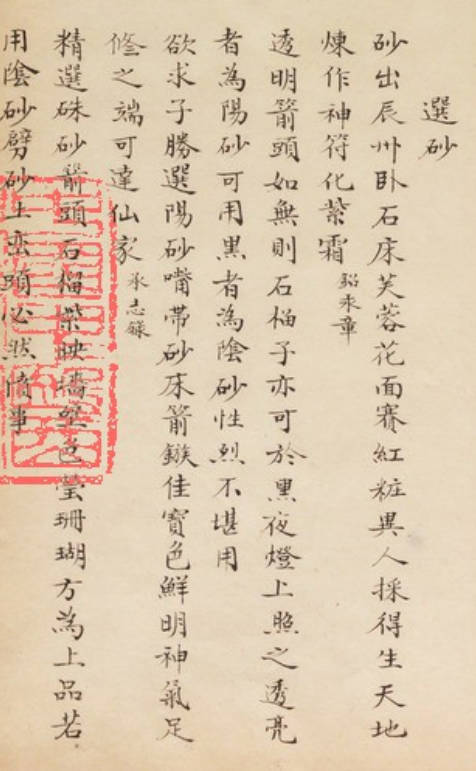 選砂
砂出辰州卧石床芙蓉花面賽紅粧異人採得生天地
煉作神符化紫霜鉛汞章
透明箭頭如無則石榴子亦可於黑夜燈上照之透亮
者為陽砂可用黑者為陰砂性烈不堪用
欲求子勝選陽砂嘴帶砂床箭鏃佳寶色鮮明神氣足
修之端可達仙家承志錄
精選硃砂箭頭石榴映墻壁色瑩珊瑚方為上品若
用陰砂劈砂土頭必然僨事